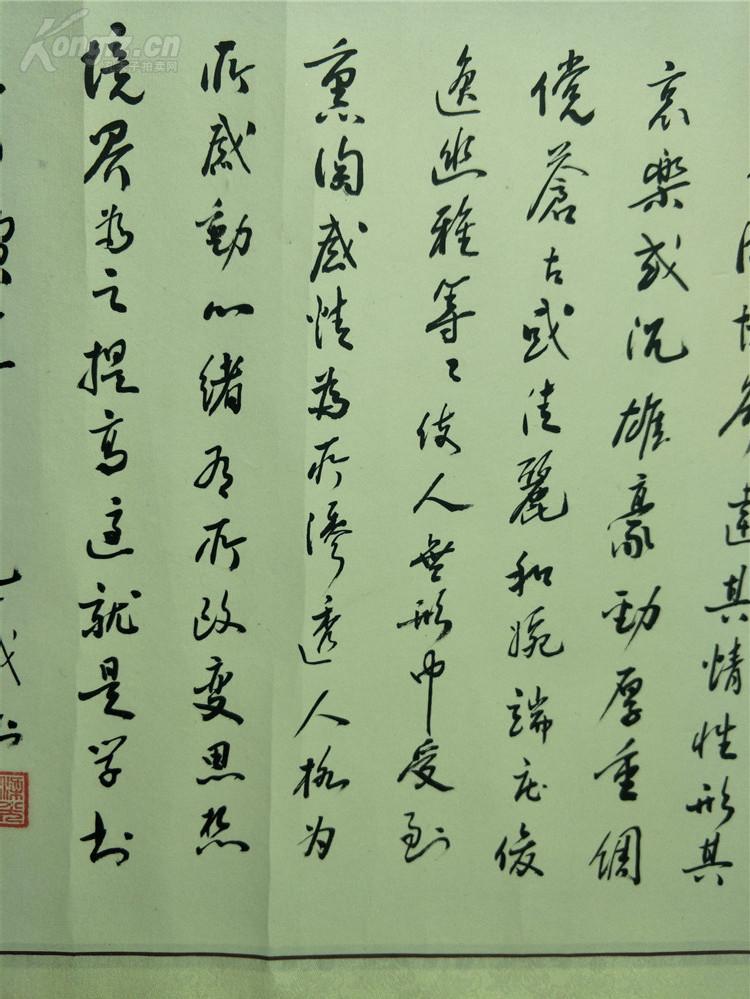 達其情性形其
哀樂或沉雄豪勁厚重倜
儻蒼古或佳麗和婉端庄俊
逸幽雅等々使人無形中受到
熏陶感情為所滲透人格为
所感動心緒为所改变思想
境界为之提高這就是学书
Kongfz.cn
孔夫子拍卖网